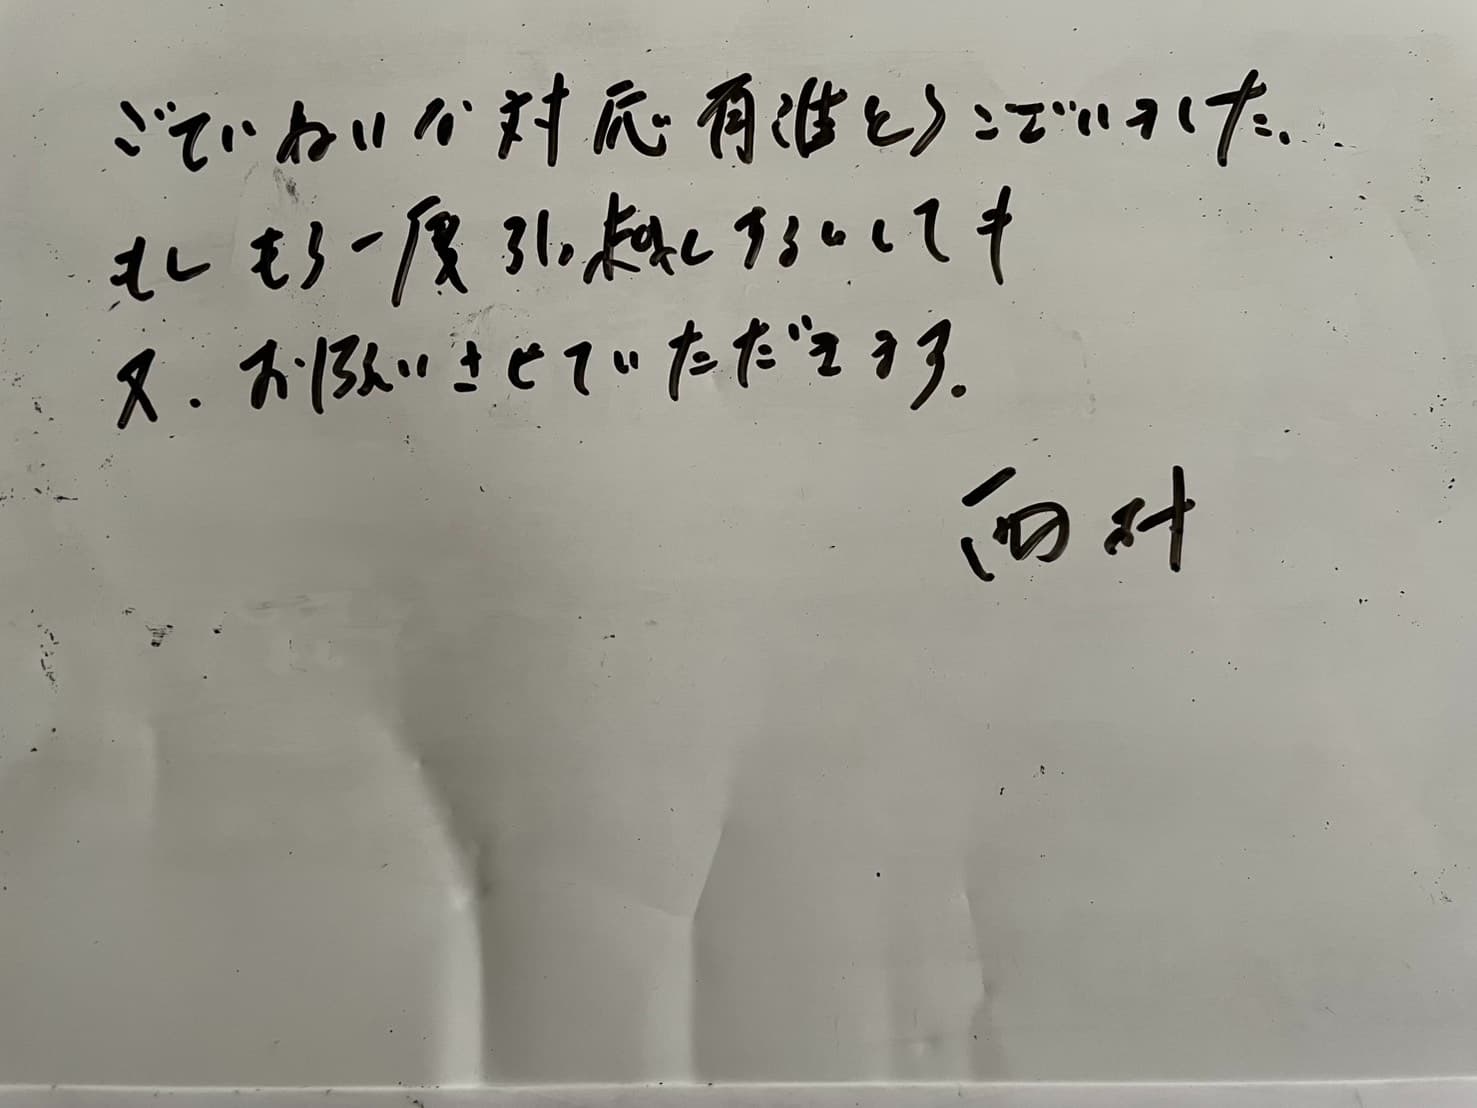 ごていねいな対応有難とうございました.
もしもう一度引越しするにしても
又.お願いさせていただきます.
西村